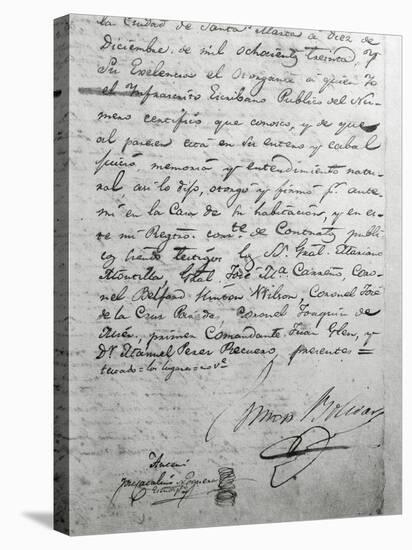 la Ciudad de Santa Marta a diez de
Diciembre, de mil ochocient. treinta, y
Su Excelencia el Otorgante a quien Yo
el Infrascrito Escribano Publico del Nú-
mero certifico que conosco, y de que
al parecer esta en su entero y cabal
juicio, memoria y entendimiento natu-
ral asi lo dijo, otorgo y firmó pr. ante-
mi en la Casa de su habitacion, y en es-
te mi Registro corrte. de Contratos publi-
cos siendo testigos los SS. Gral. Mariano
Montilla, Gral. José Ma. Carreño, Coro-
nel Belford Hinton Wilson, Coronel José
de la Cruz Paredes Coronel Joaquin de
Mier, primer Comandante Juan Glen, y
Dr. Manuel Perez Recuero, presentes =
Simon Bolivar
Ante mi
José Catalino Noguera